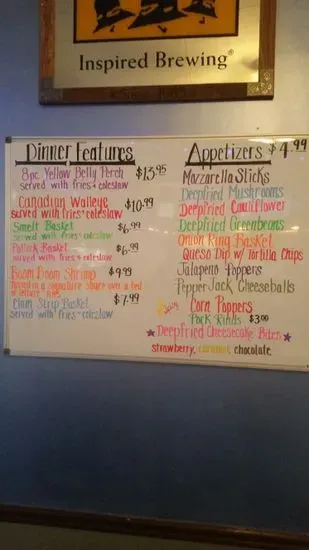 Inspired Brewing®
Dinner Features
8pc. Yellow Belly Perch $13.95
served with fries & coleslaw
Canadian Walleye $10.99
served with fries & coleslaw
Smelt Basket $6.99
served with fries & coleslaw
Pollock Basket $6.99
served with fries & coleslaw
Boom Boom Shrimp $9.99
tossed in a signature sauce over a bed
of lettuce
Clam Strip Basket $7.99
served with fries & coleslaw
Appetizers $4.99
Mozzarella Sticks
Deepfried Mushrooms
Deepfried Cauliflower
Deepfried Greenbeans
Onion Ring Basket
Queso Dip w/ Tortilla Chips
Jalapeño Poppers
Pepper Jack Cheeseballs
Corn Poppers
Pork Rinds $3.00
Deepfried Cheesecake Bites
strawberry, caramel, chocolate